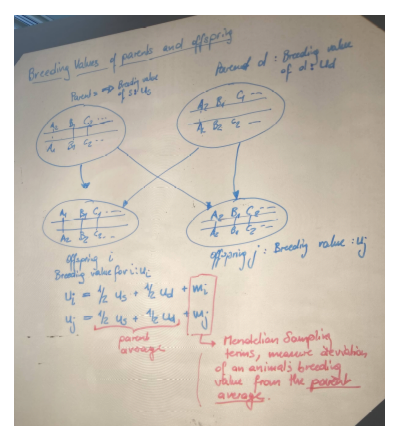 Breeding Values of parents and offspring
Parent s → Breeding value
of s: us
Parent d : Breeding value
of d : ud
A1 B1 C1 ---
A2 B1 C1 ---
A2 B2 C2 ---
A1 B1 C1 ---
A2 B2 C2 ---
A2 B1 C2 ---
offspring i
Breeding value for i: ui
offspring j : Breeding value : uj
ui = 1/2 us + 1/2 ud + mi
uj = 1/2 us + 1/2 ud + mj
parent
average
Mendelian Sampling
terms, measure deviation
of an animal's breeding
value from the parent
average.